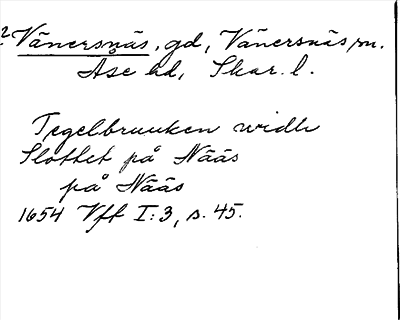 ? Vänersnäs, gd, Vänersnäs, sn.
Åse hd, Skar. l.
Tegelbruuken widh
Slottet på Nääs
på Nääs
1654 Vft I:3, s. 45.